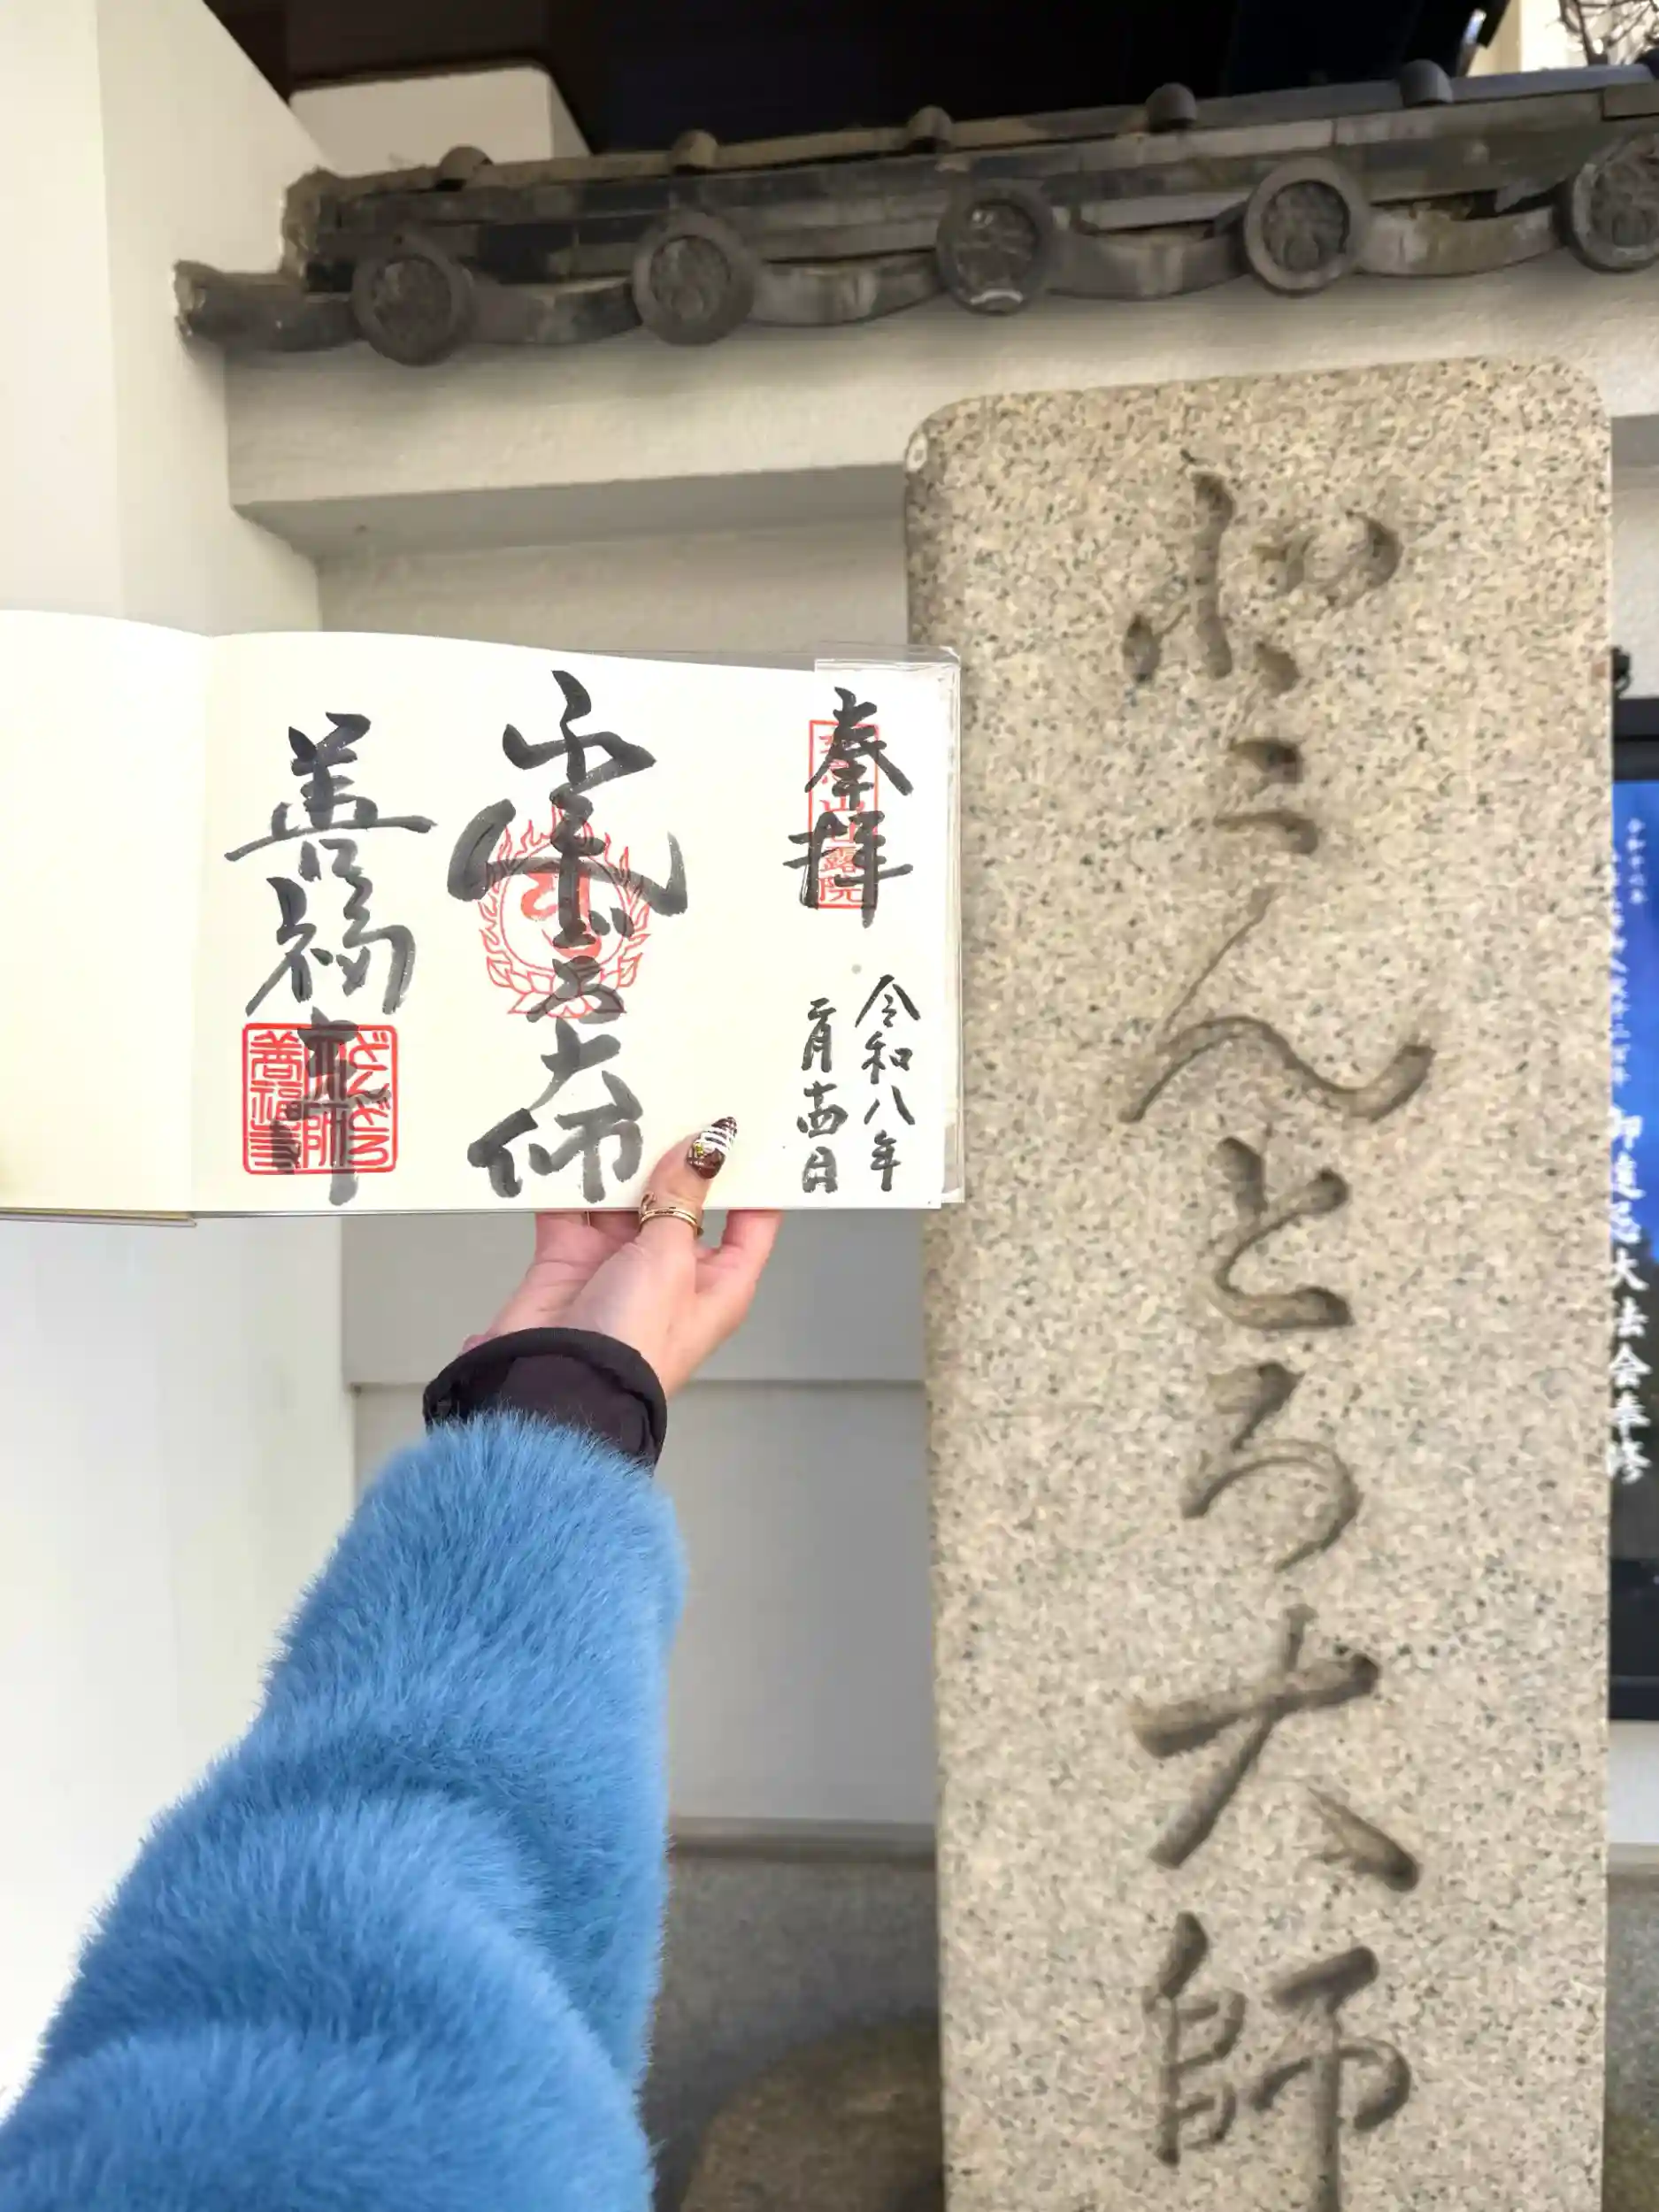 奉拝
山甘露院
令和八年
二月十四日
大師
善福寺
どんどろ
大師
善福寺
んとろ大師
御遠忌大法会奉修